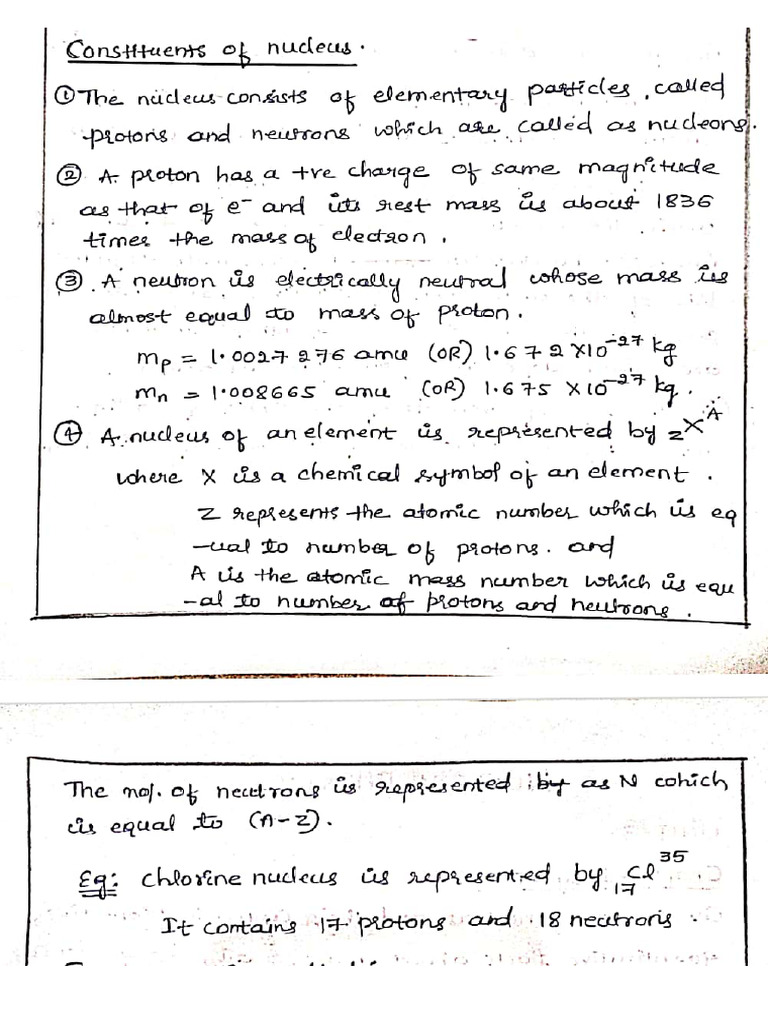 Constituents of nucleus.
① The nucleus consists of elementary particles, called
protons and neutrons which are called as nucleons.
② A proton has a +ve charge of same magnitude
as that of e⁻ and its rest mass is about 1836
times the mass of electron.
③ A neutron is electrically neutral whose mass is
almost equal to mass of proton.
mₚ = 1.0027276 amu (OR) 1.672 X10⁻²⁷ kg
mₙ = 1.008665 amu (OR) 1.675 X10⁻²⁷ kg.
④ A nucleus of an element is represented by zXᴬ
where X is a chemical symbol of an element.
Z represents the atomic number which is eq
-ual to number of protons. and
A is the atomic mass number which is equ
-al to number of protons and neutrons.
The no/. of neutrons is represented by as N which
is equal to (A-Z).
Eg: chlorine nucleus is represented by ₁₇Cl³⁵
It contains 17 protons and 18 neutrons.